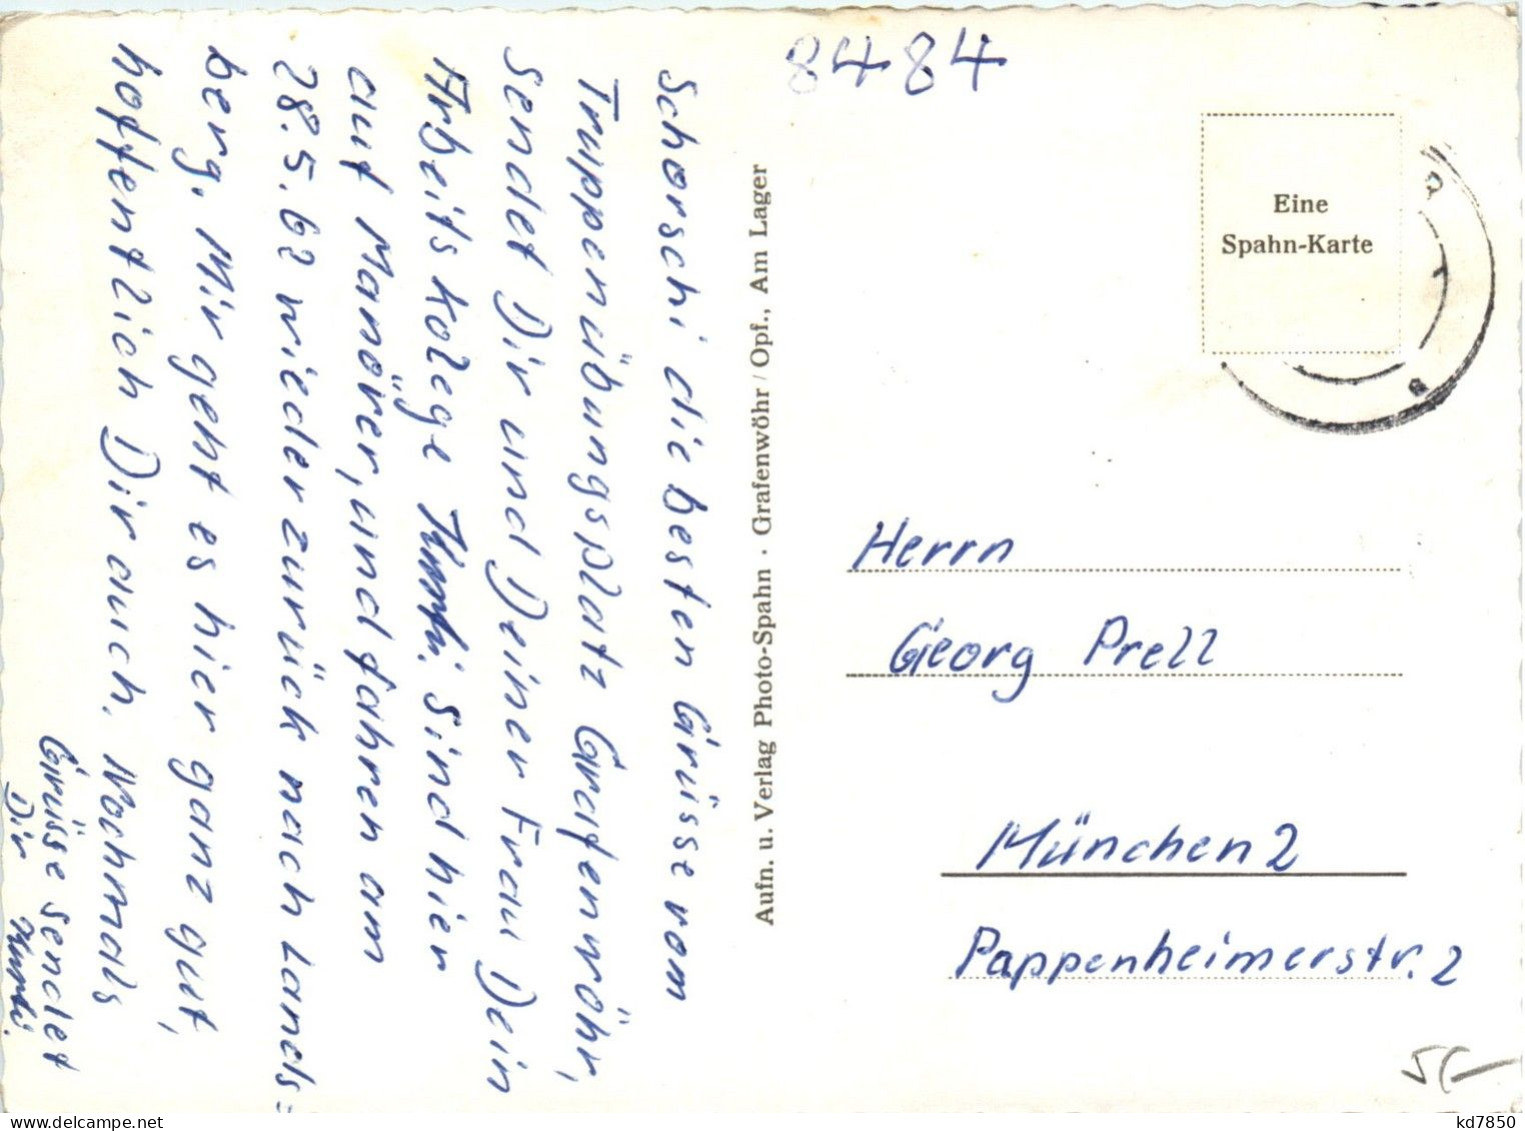 8484
Schorschi die besten Grüsse vom
Truppenübungsplatz Grafenwöhr,
sendet Dir und Deiner Frau Dein
Arbeitskolege Sind hier
auf Manöver, und fahren am
28.5.62 wieder zurück nach Lands=
berg. Mir geht es hier ganz gut,
hoffentlich Dir auch. Nochmals
Grüsse sendet
Dir
Aufn. u. Verlag Photo-Spahn · Grafenwöhr / Opf., Am Lager
Eine
Spahn-Karte
Herrn
Georg Prell
München 2
Pappenheimerstr. 2
delcampe.net
kd7850